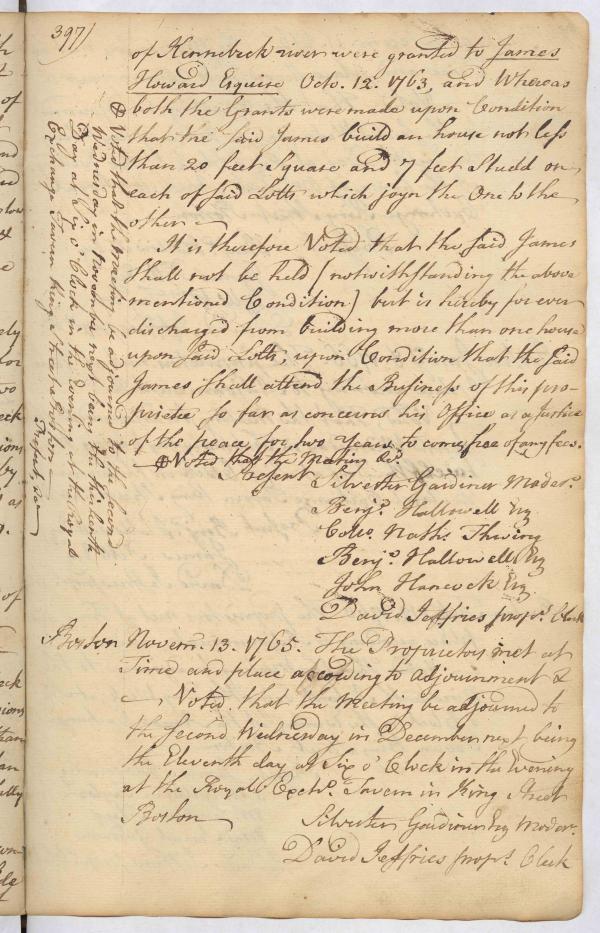 397)
of Kennebeck river were granted to James
Howard Esquire Octo. 12. 1763, and Whereas
both the Grants were made upon Condition
that the said James build an house not less
than 20 feet Square and 7 feet Studd on
each of said Lotts which joyn the One to the
other
It is therefore Voted that the said James
shall not be held (notwithstanding the above
mentioned Condition) but is hereby for ever
discharged from building more than one house
upon said Lotts; upon Condition that the said
James shall attend the Business of this pro-
prietee so far as concerns his Office as a Justice
of the peace for two Years to come, free of any fees.
⊕ Voted that the Meeting &c.
Present
Silvester Gardiner Moder.
Benj.ⁿ Hallowell Esq
Colo. Nath. Thwing
Benj.ⁿ Hallowell Esq
John Hancock Esq
David Jeffries prop.ʳ Clerk
⊕ Voted that the Meeting be adjourned to the second
Wednesday in November next being the thirteenth
Day at Six o' Clock in the evening at the Royal
Exchange Tavern King Street Boston
Present, &c
Boston Novem. 13. 1765. The Proprietors met at
Time and place according to adjournment &
Voted. that the Meeting be adjourned to
the second Wednesday in December next being
the Eleventh day at Six o' Clock in the Evening
at the Royall Exch.ᵉ Tavern in King Street
Boston
Silvester Gardiner Esq Moder.
David Jeffries prop.ʳ Clerk